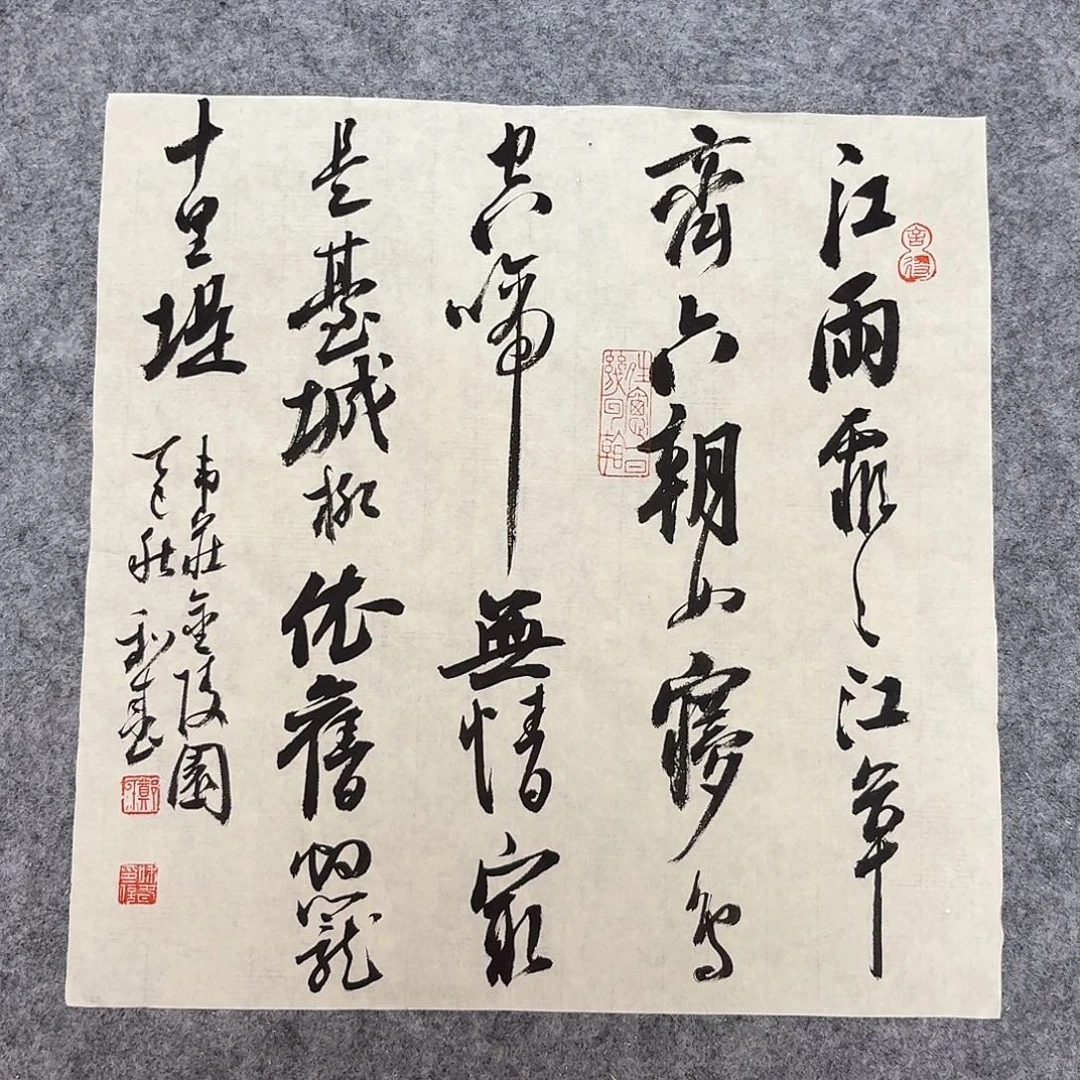 江雨霏〻江草
齊六朝如夢鳥
空啼無情家
是臺城柳依舊烟籠
十里堤
韋莊金陵圖
乙巳秋